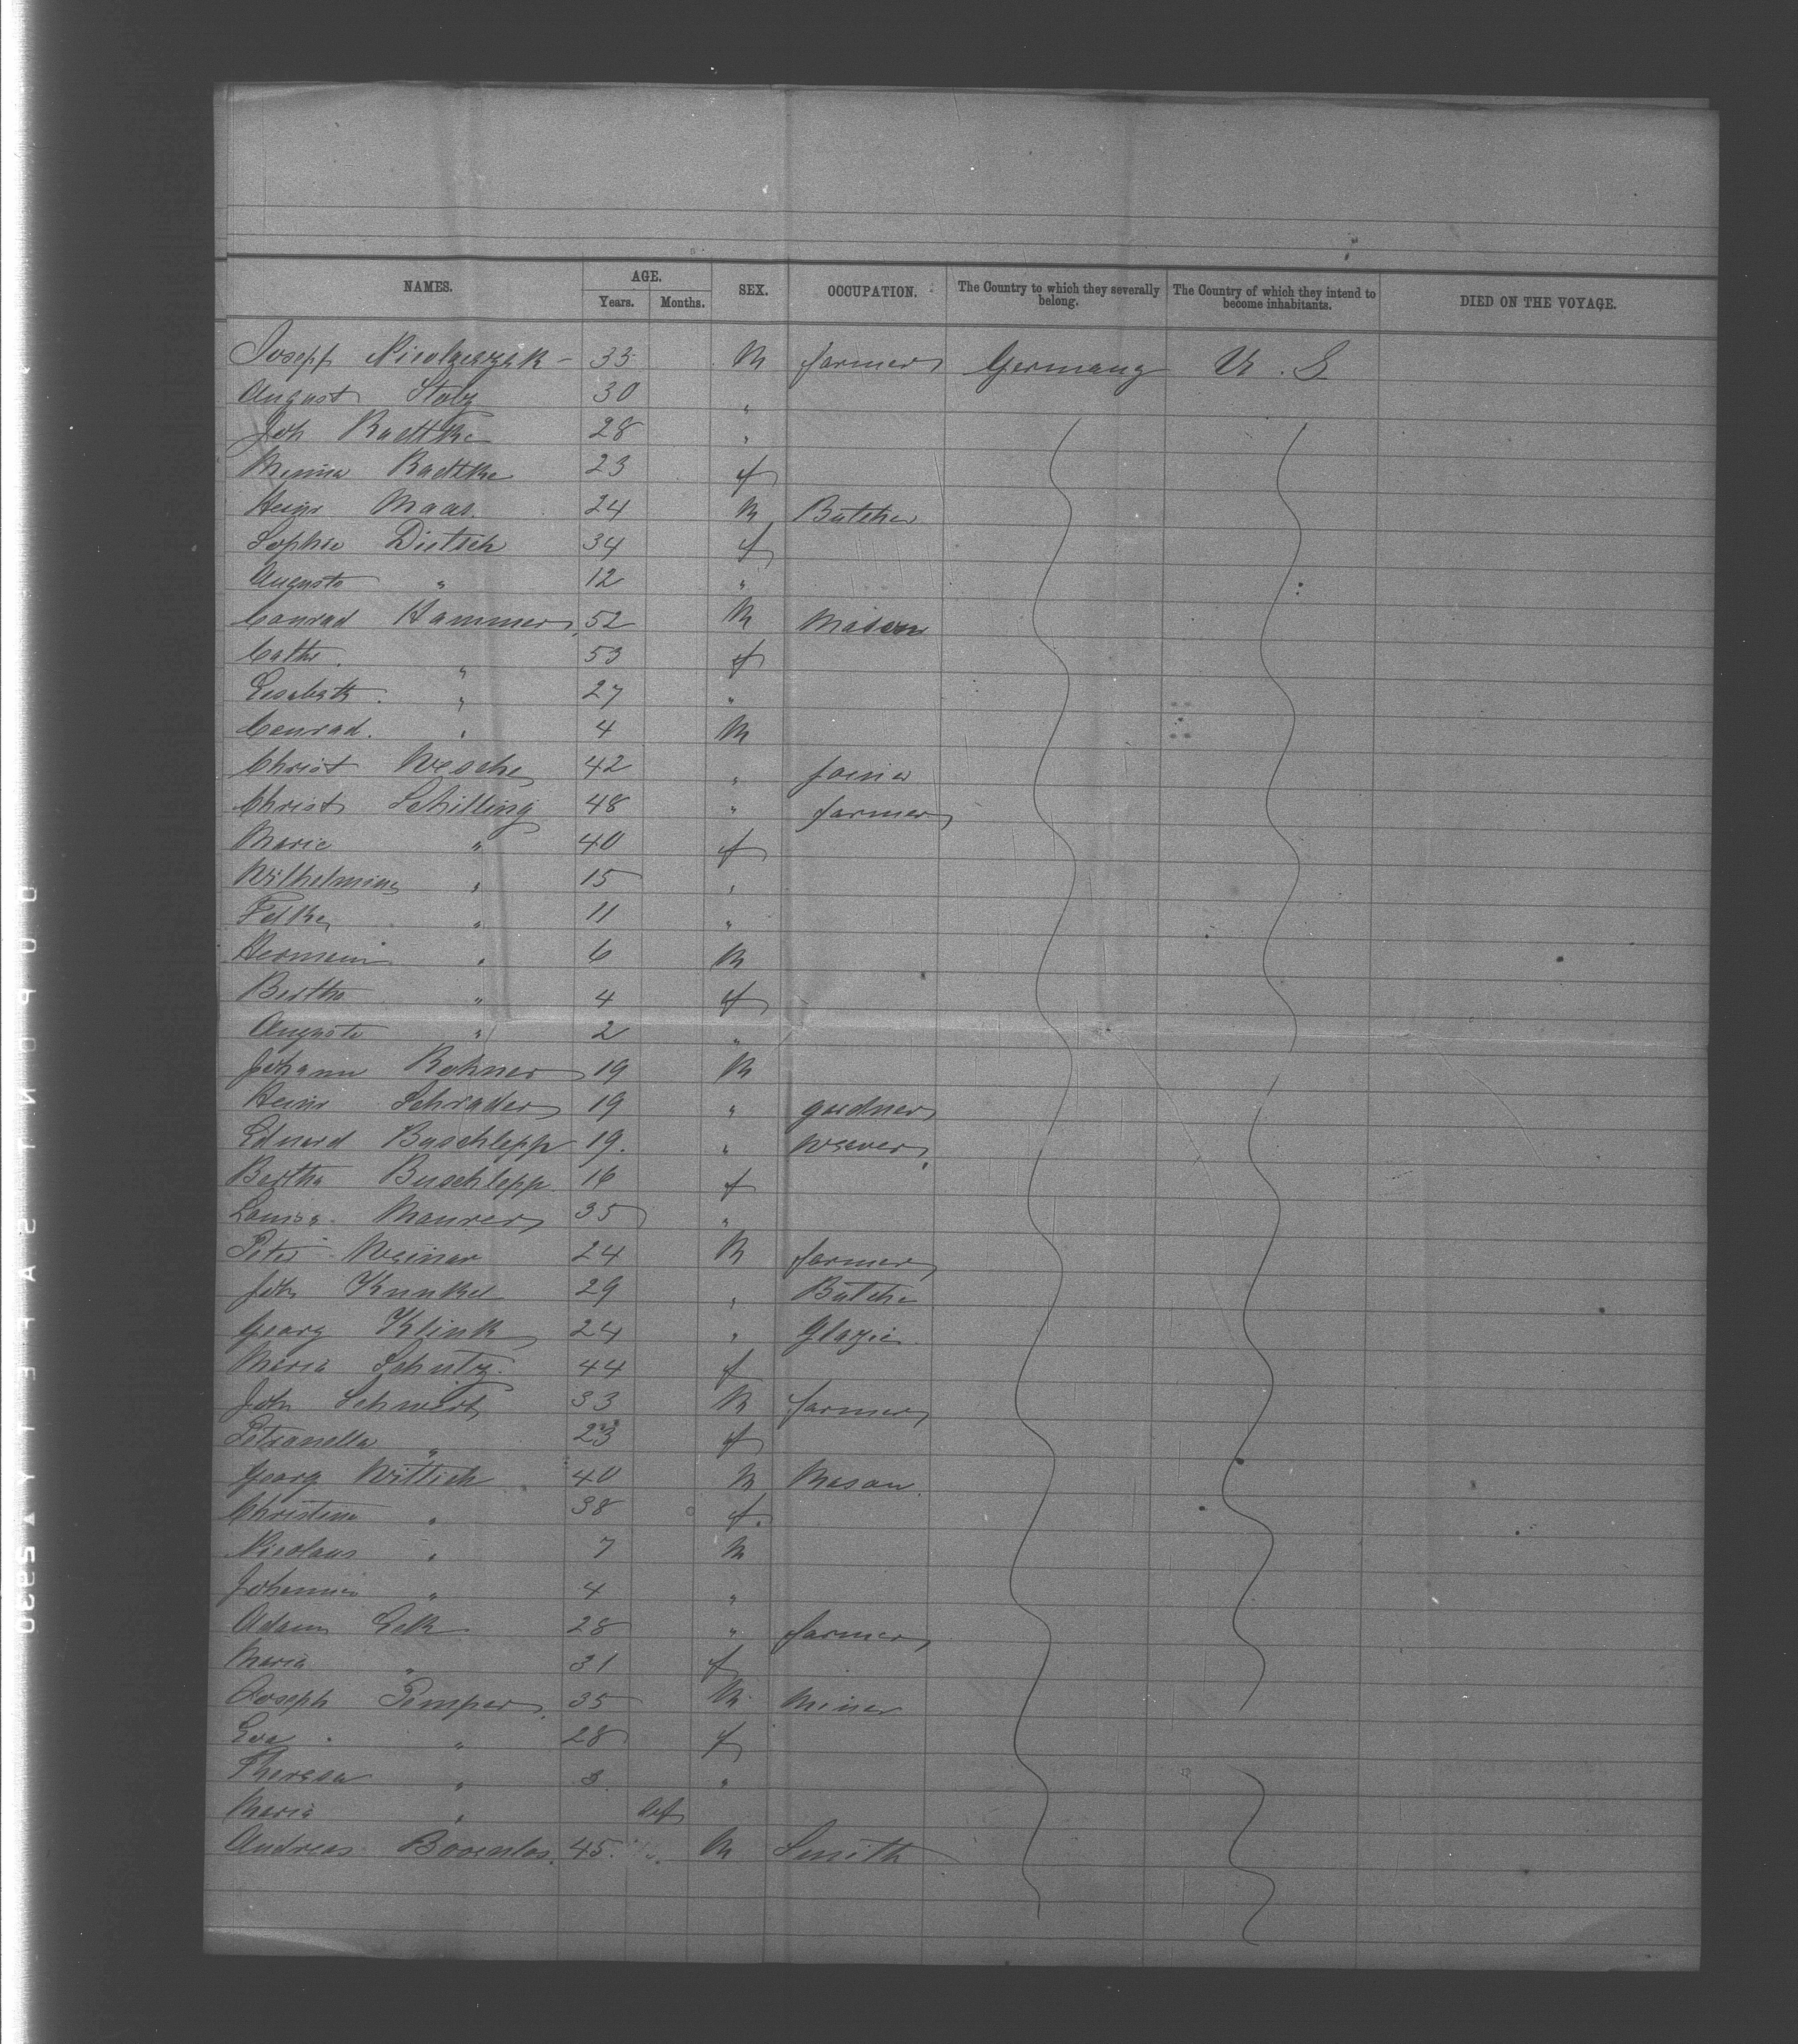 NAMES. AGE. SEX. OCCUPATION. The Country to which they severally belong. The Country of which they intend to become inhabitants. DIED ON THE VOYAGE.
Years. Months.
Joseph 33 M farmer Germany U. S
August Stolz 30 "
Joh Radtke 28 "
Minna Radtke 23 f
Heinr Maas 24 M Butcher
Sophie Dietsch 34 f
Auguste " 12 "
Conrad Hammer 52 M Mason
Cathr. " 53 f
Elisabeth " 27 "
Conrad. " 4 M
Christ Wesche 42 " joiner
Christ Schilling 48 " farmer
Marie " 40 f
Wilhelmine " 15 "
" 11 "
Hermann " 6 M
Bertha " 4 f
Auguste " 2 "
Johann Rohner 19 M
Heinr Schrader 19 " gardner
Eduard Buschlepp 19. " Weaver
Bertha Buschlepp 16 f
Louisa Maurer 35 "
Peter Weimar 24 M farmer
Joh Kunkel 29 " Butcher
Georg Klink 24 " Glazier
Maria Schutz 44 f
Joh 33 M farmer
Petronella " 23 f
Georg Wittich 40 M Mason
Christina " 38 f.
Nicolaus " 7 M
Johannes " 4 "
Adam 28 " farmer
Maria " 31 f
Joseph Pemper 35 M Miner
Eva " 28 f
Theresa " 3 "
Maria "
Andreas 45 M Smith